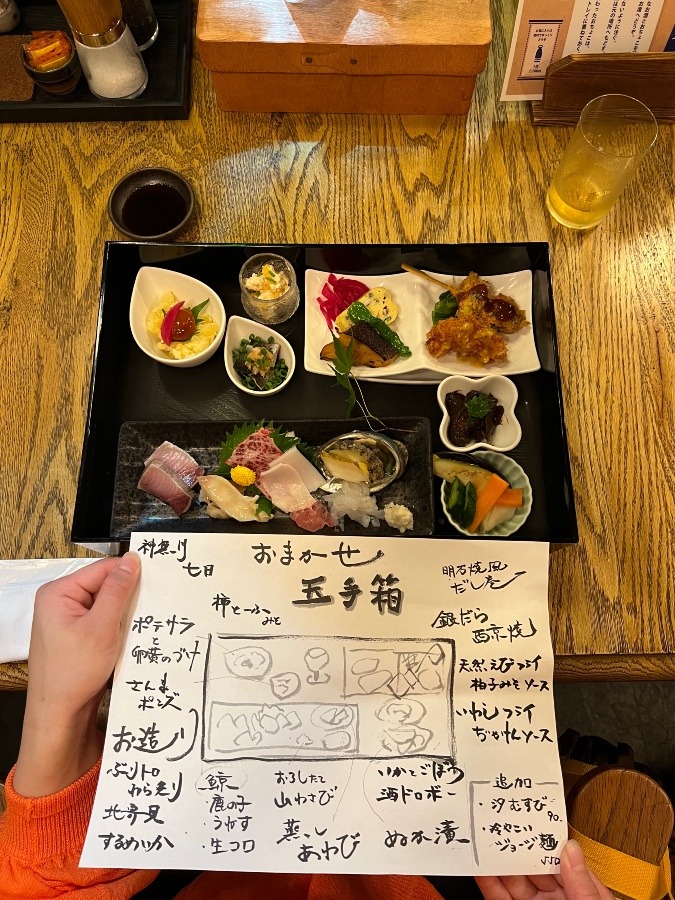 神無月
七日
おまかせ
玉手箱
明石焼風
だし巻
柿とーふ
みそ
銀だら
西京焼
ポテサラ
と
卵黄のづけ
さんま
ポンズ
お造り
天然えびフライ
柚子みそソース
いわしフライ
ぶりトロ
わら炙り
北寄貝
するめいか
鯨
・鹿の子
・うねす
・生コロ
おろしたて
山わさび
蒸し
あわび
いかとごぼう
酒ドロボー
ぬか漬
追加
・汐むすび
90.
・冷やこい
ジョージ麺
550